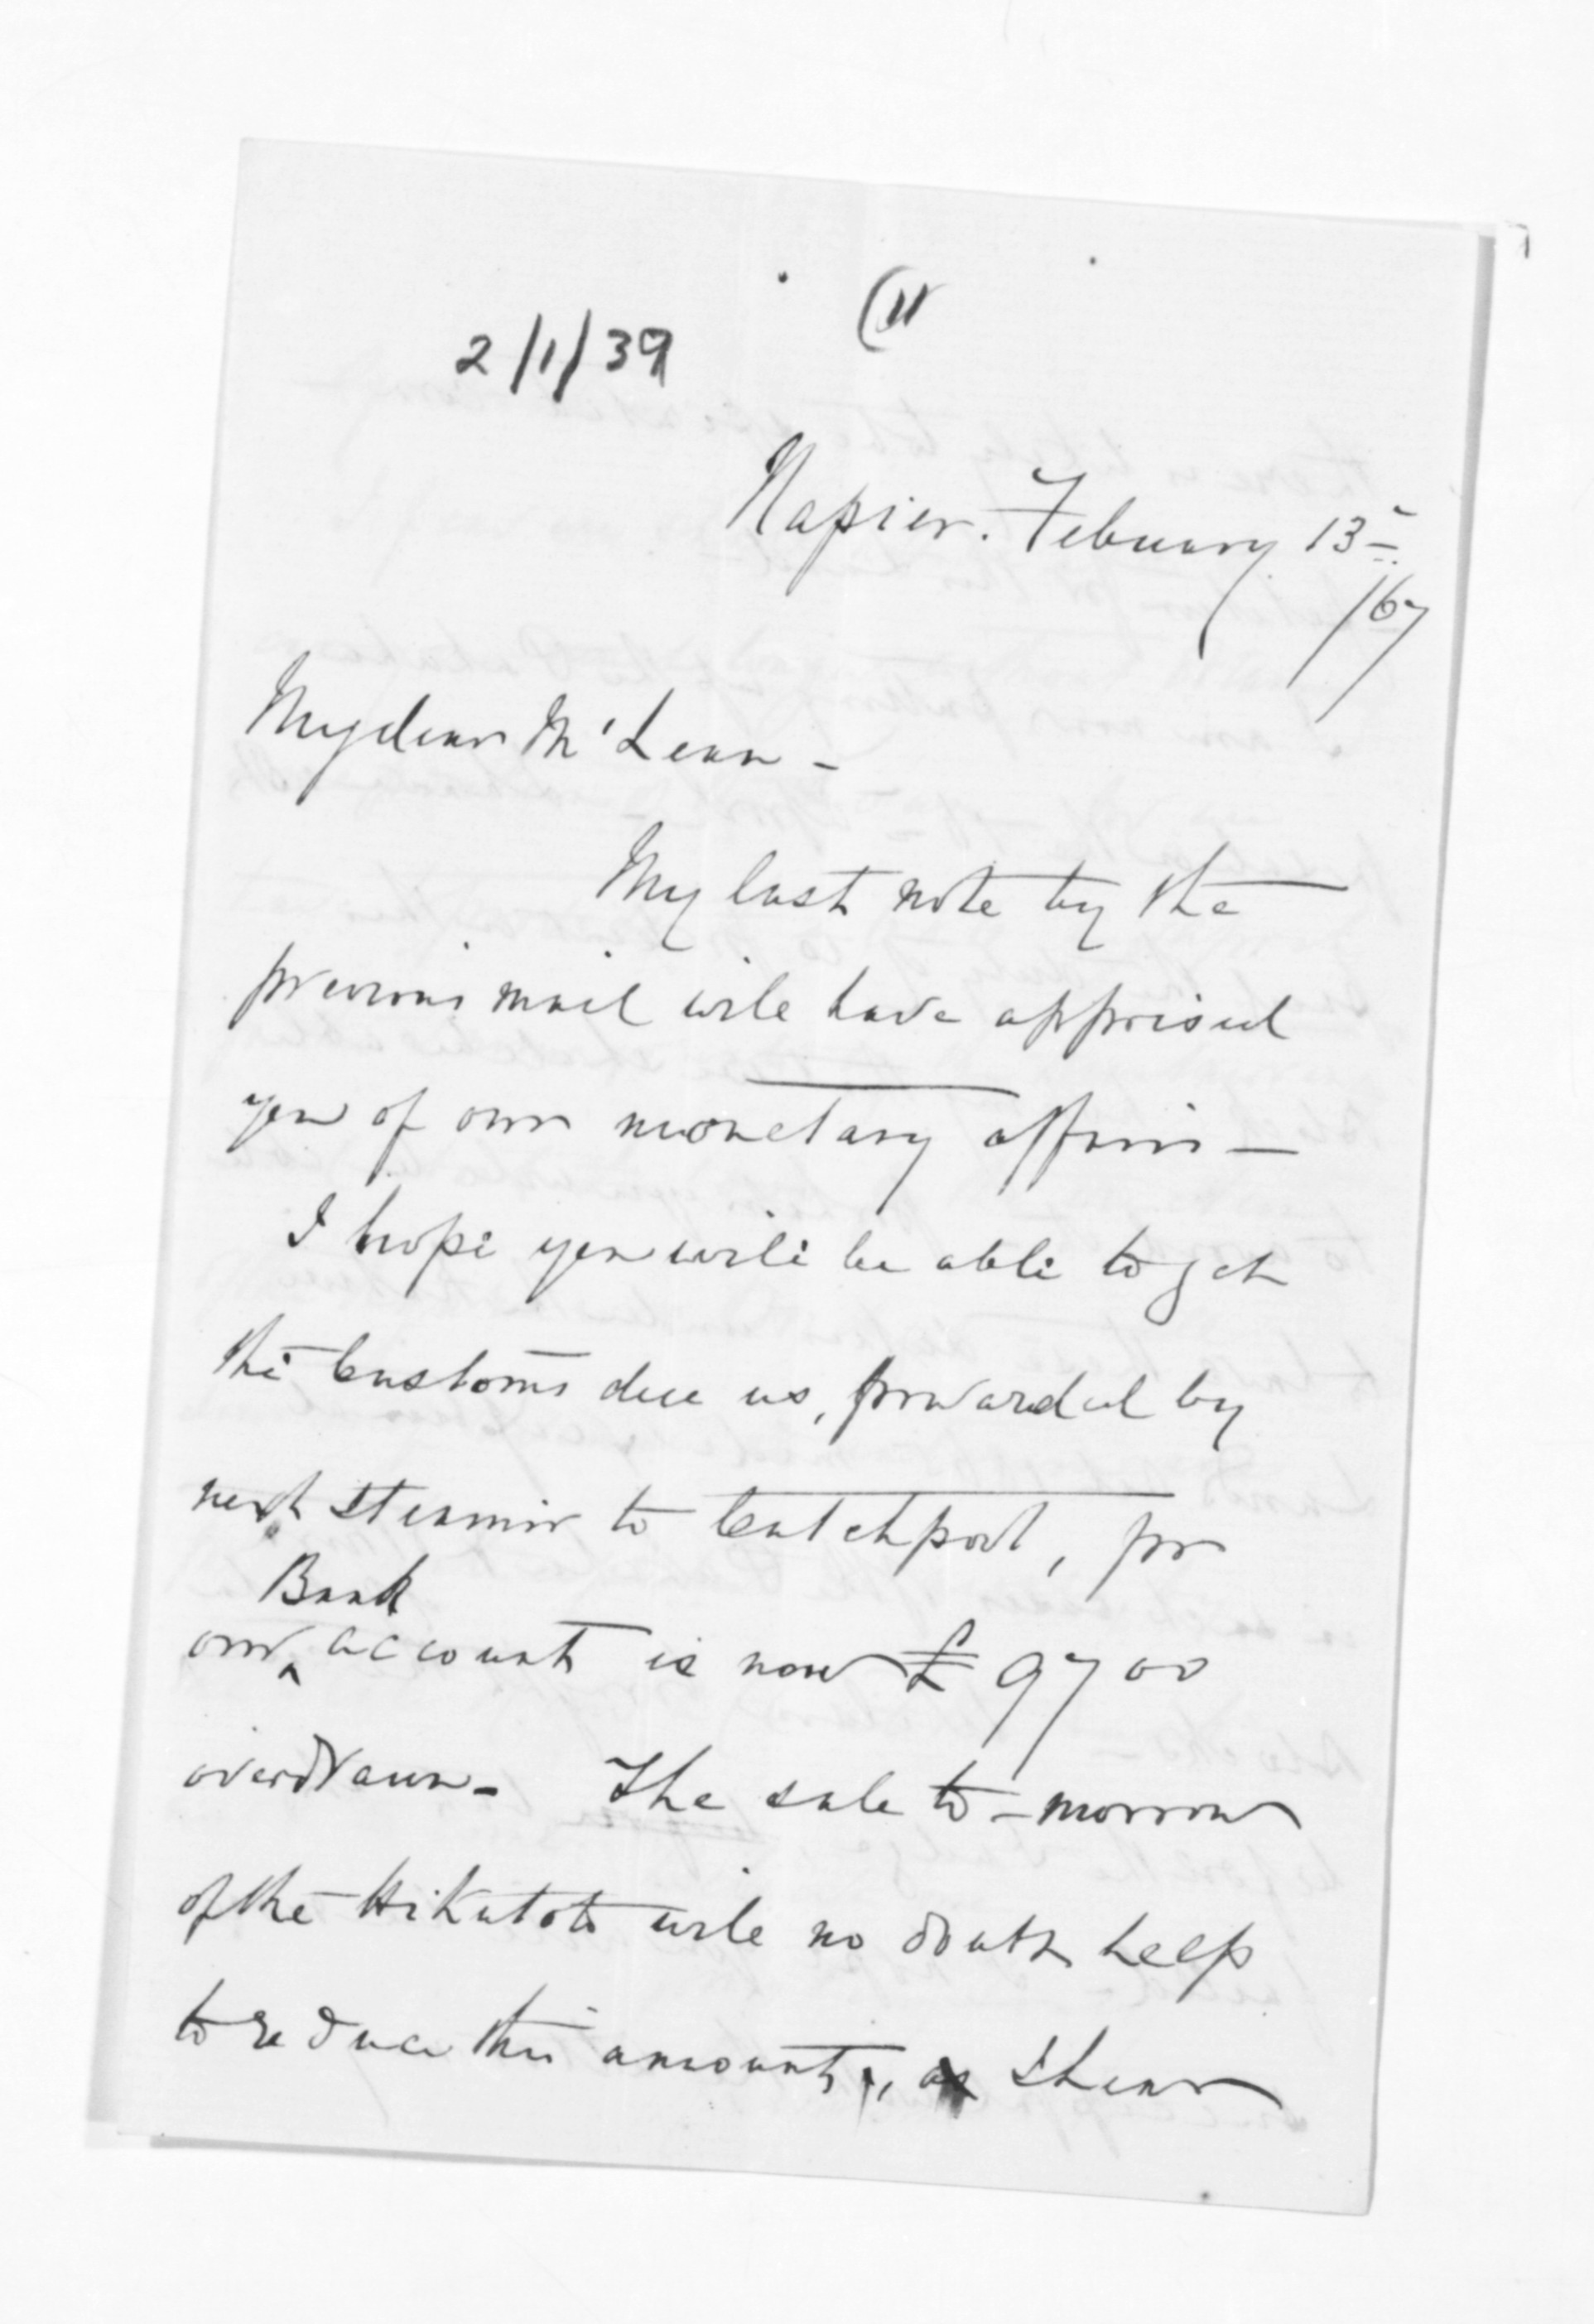 (11
2/1/39
Napier. Febuary 13th
/67
My dear McLean -
My last note by the
previous mail will have apprised
you of our monetary affairs -
I hope you will be able to get
the Customs due us, forwarded by
next steamer to Catchpool, for
our Bank account is now £9700
overdrawn - The sale to-morrow
of the Hikutoto will no doubt help
to reduce this amount, as I hear